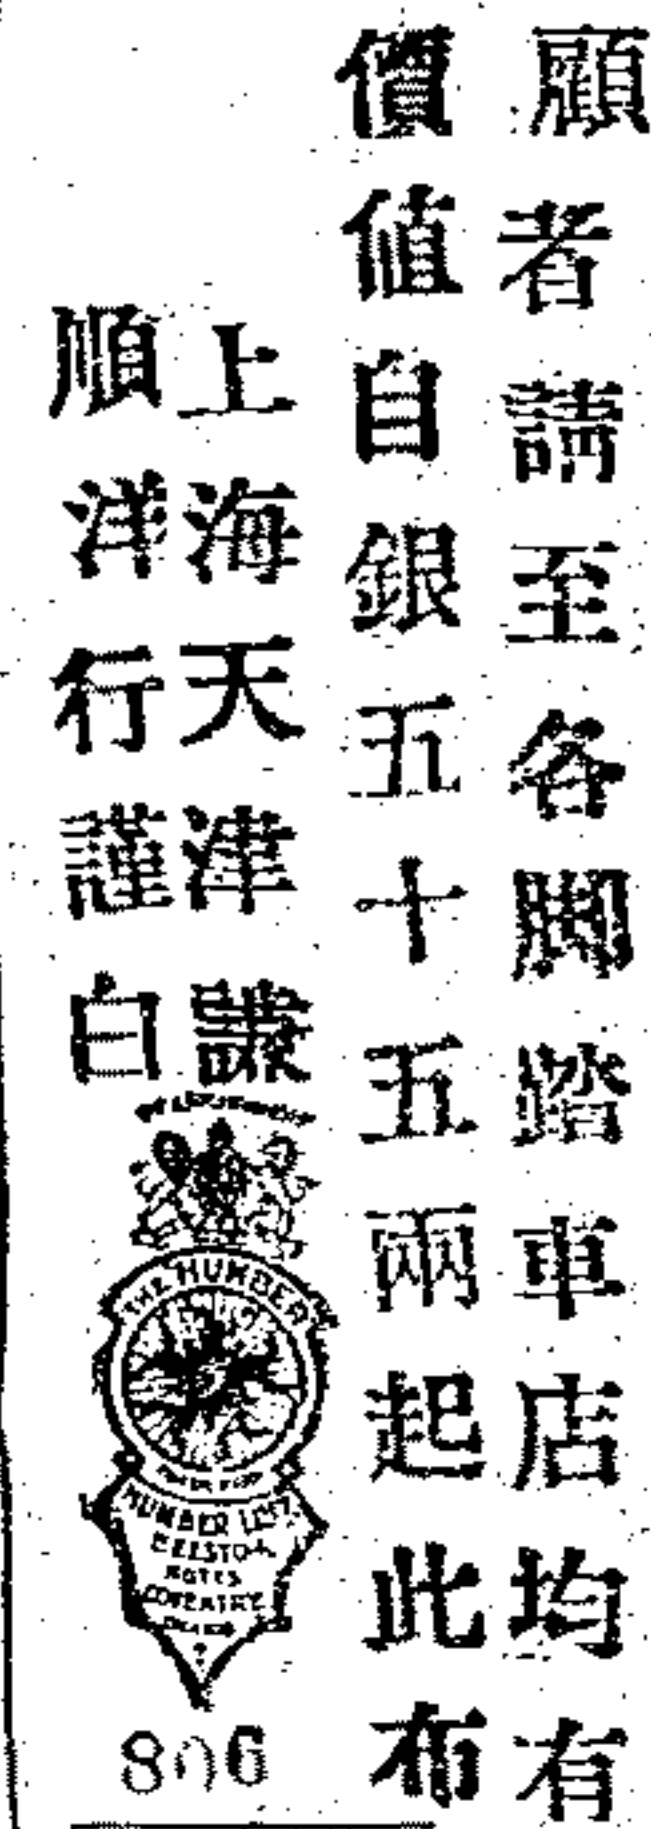 顧者請至各脚踏車店均有
價值自銀五十五兩起此布
上海天津
順洋行謹白
THE HUMBER
HUMBER LTD
BEESTON
NOTTS
COVENTRY
806